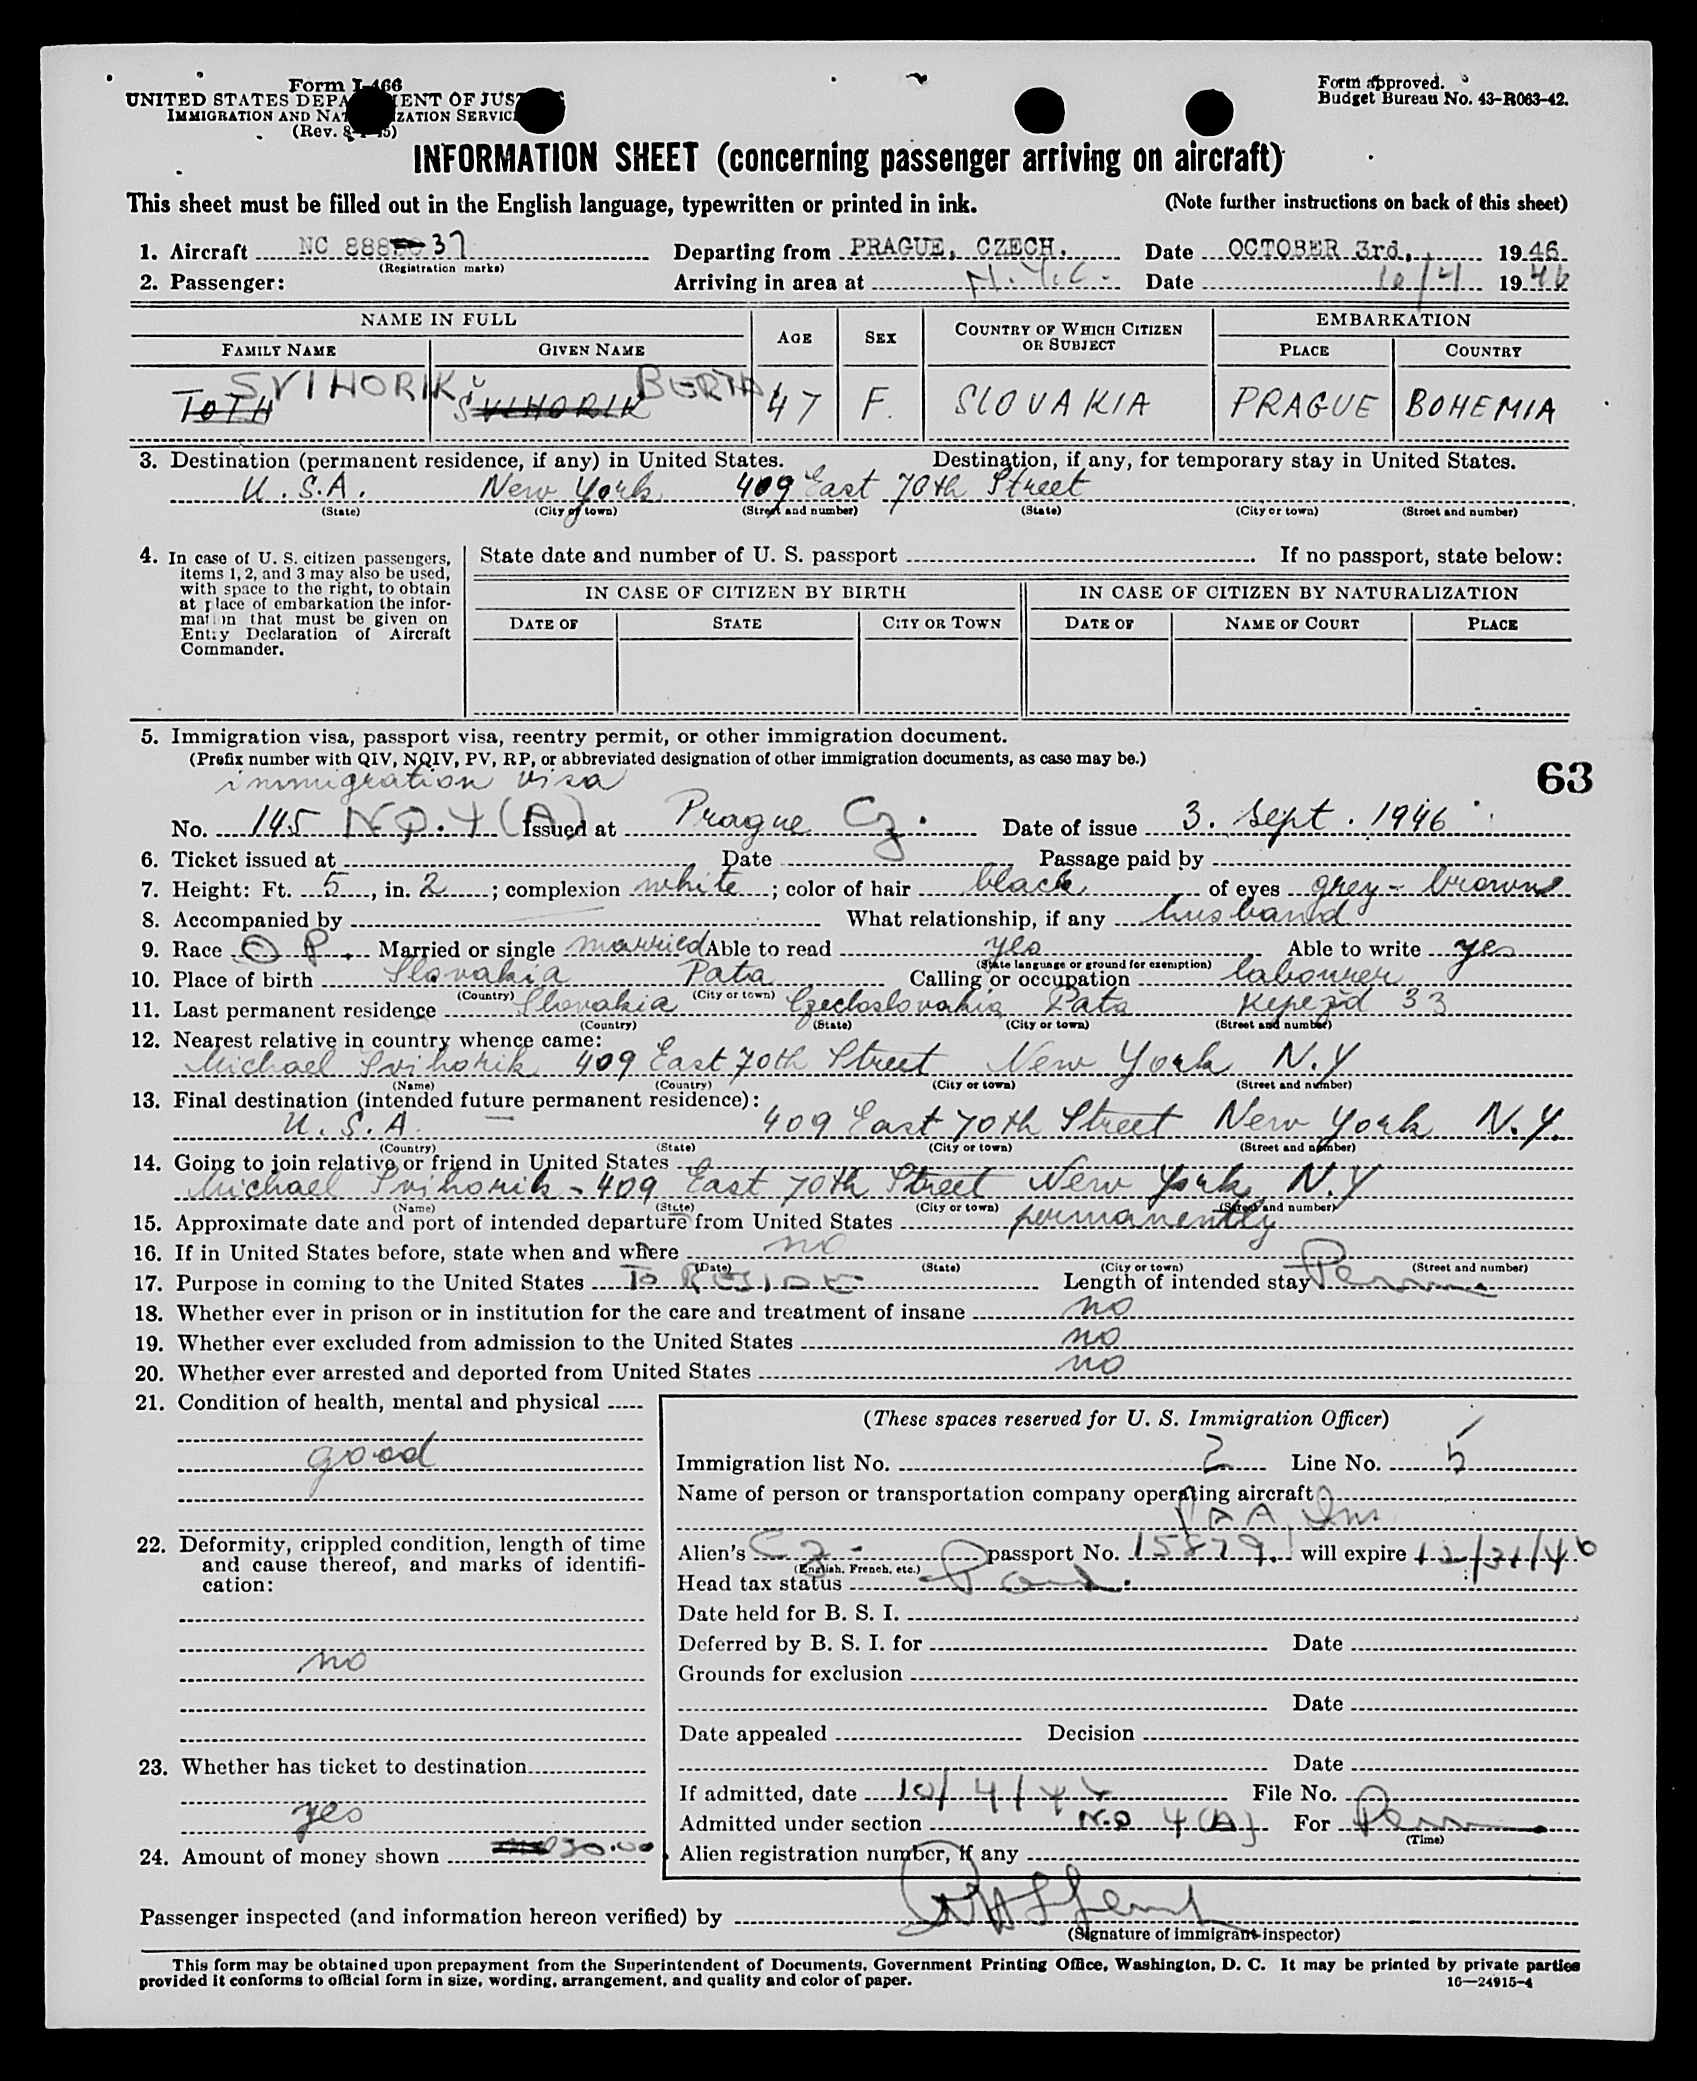 Form I-466
UNITED STATES DEPARTMENT OF JUSTICE
IMMIGRATION AND NATURALIZATION SERVICE
(Rev. 8-1-45)
Form approved.
Budget Bureau No. 43-R063-42.
INFORMATION SHEET (concerning passenger arriving on aircraft)
This sheet must be filled out in the English language, typewritten or printed in ink. (Note further instructions on back of this sheet)
1. Aircraft NC 888 37 Departing from PRAGUE, CZECH. Date OCTOBER 3rd, 1946
(Registration marks)
2. Passenger: Arriving in area at N.Y.C. Date 10/4 1946
NAME IN FULL AGE SEX COUNTRY OF WHICH CITIZEN OR SUBJECT EMBARKATION
FAMILY NAME GIVEN NAME PLACE COUNTRY
SVIHORIK BERTA
TOTH ŠVIHORIK 47 F. SLOVAKIA PRAGUE BOHEMIA
3. Destination (permanent residence, if any) in United States. Destination, if any, for temporary stay in United States.
U.S.A. New York 409 East 70th Street
(State) (City or town) (Street and number) (State) (City or town) (Street and number)
4. In case of U. S. citizen passengers, items 1, 2, and 3 may also be used, with space to the right, to obtain at place of embarkation the information that must be given on Entry Declaration of Aircraft Commander.
State date and number of U. S. passport If no passport, state below:
IN CASE OF CITIZEN BY BIRTH IN CASE OF CITIZEN BY NATURALIZATION
DATE OF STATE CITY OR TOWN DATE OF NAME OF COURT PLACE
5. Immigration visa, passport visa, reentry permit, or other immigration document.
(Prefix number with QIV, NQIV, PV, RP, or abbreviated designation of other immigration documents, as case may be.)
63
immigration visa
No. 145 NQ. 4 (A) Issued at Prague Cz. Date of issue 3. Sept. 1946
6. Ticket issued at Date Passage paid by
7. Height: Ft. 5, in. 2; complexion white; color of hair black of eyes grey-brown
8. Accompanied by What relationship, if any husband
9. Race O P. Married or single married Able to read yes Able to write yes
(State language or ground for exemption)
10. Place of birth Slovakia Pata Calling or occupation labourer
(Country) (City or town)
11. Last permanent residence Slovakia Czechoslovakia Pata 33
(Country) (State) (City or town) (Street and number)
12. Nearest relative in country whence came:
Michael Svihorik 409 East 70th Street New York N.Y
(Name) (Country) (City or town) (Street and number)
13. Final destination (intended future permanent residence):
U.S.A. — 409 East 70th Street New York N.Y.
(Country) (State) (City or town) (Street and number)
14. Going to join relative or friend in United States
Michael Svihorik - 409 East 70th Street New York N.Y
(Name) (State) (City or town) (Street and number)
15. Approximate date and port of intended departure from United States permanently
16. If in United States before, state when and where no
(Date) (State) (City or town) (Street and number)
17. Purpose in coming to the United States To RESIDE Length of intended stay Perm
18. Whether ever in prison or in institution for the care and treatment of insane no
19. Whether ever excluded from admission to the United States no
20. Whether ever arrested and deported from United States no
21. Condition of health, mental and physical
good
22. Deformity, crippled condition, length of time and cause thereof, and marks of identification:
no
23. Whether has ticket to destination
yes
24. Amount of money shown 30.00
(These spaces reserved for U. S. Immigration Officer)
Immigration list No. 2 Line No. 5
Name of person or transportation company operating aircraft
PAA Inc
Alien's Cz. passport No. 15879. will expire 12/31/46
(English, French, etc.)
Head tax status Paid.
Date held for B. S. I.
Deferred by B. S. I. for Date
Grounds for exclusion
Date
Date appealed Decision
Date
If admitted, date 10/4/46 File No.
Admitted under section N.Q 4(A) For Perm
(Time)
Alien registration number, if any
Passenger inspected (and information hereon verified) by
(Signature of immigrant inspector)
This form may be obtained upon prepayment from the Superintendent of Documents, Government Printing Office, Washington, D. C. It may be printed by private parties
provided it conforms to official form in size, wording, arrangement, and quality and color of paper. 16—24915-4